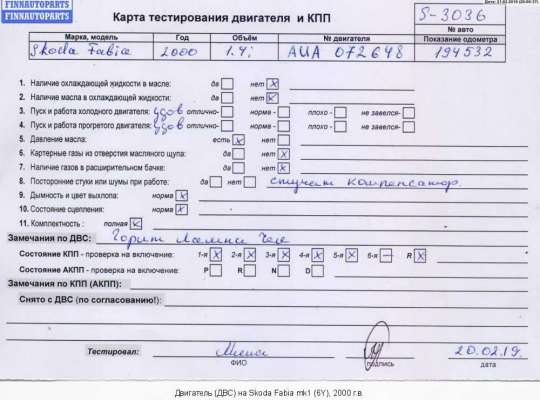 FINNAUTOPARTS
FINNAUTOPARTS
Карта тестирования двигателя и КПП
S-3036
№ авто
Марка, модель Год Объём № двигателя Показание одометра
Skoda Fabia 2000 1.4i AUA 072648 194532
1. Наличие охлаждающей жидкости в масле: да нет X
2. Наличие масла в охлаждающей жидкости: да нет X
3. Пуск и работа холодного двигателя: удов отлично- норма - плохо - не завелся-
4. Пуск и работа прогретого двигателя: удов отлично- норма - плохо - не завелся-
5. Давление масла: есть X нет
6. Картерные газы из отверстия масляного щупа: да нет X
7. Наличие газов в расширительном бачке: да нет X
8. Посторонние стуки или шумы при работе: да нет стучит компенсатор
9. Дымность и цвет выхлопа: норма X
10. Состояние сцепления: норма X
11. Комплектность : полная
Замечания по ДВС: Горит Лампа Чек
Состояние КПП - проверка на включение: 1-я X 2-я X 3-я X 4-я X 5-я X 6-я — R X
Состояние АКПП - проверка на включение: P R N D
Замечания по КПП (АКПП):
Снято с ДВС (по согласованию!):
Тестировал: 20.02.19.
ФИО подпись дата
Двигатель (ДВС) на Skoda Fabia mk1 (6Y), 2000 г.в.